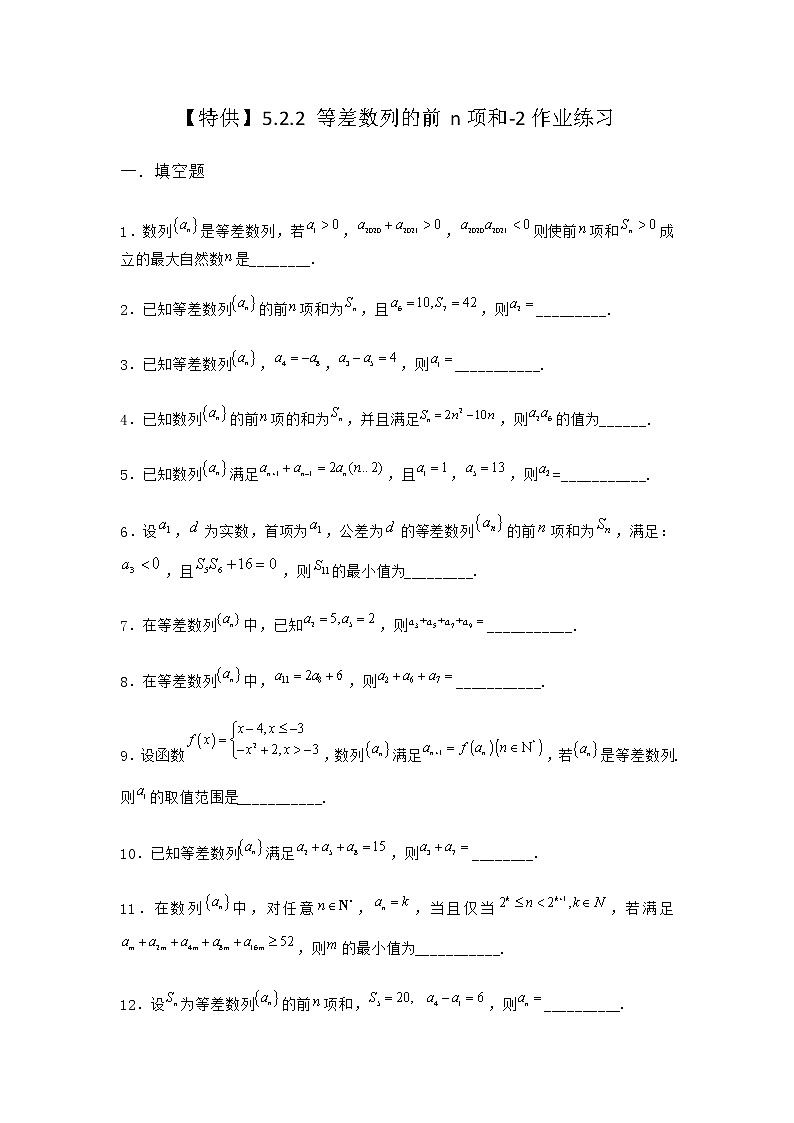 【特供】5.2.2 等差数列的前 n 项和-2 作业练习
一．填空题
1.数列{aₙ}是等差数列，若a₁ > 0，a₂₀₂₀ + a₂₀₂₁ > 0，a₂₀₂₀a₂₀₂₁ < 0则使前n项和Sₙ > 0成
立的最大自然数n是________.
2.已知等差数列{aₙ}的前n项和为Sₙ，且a₆ = 10, S₇ = 42，则a₂ = _________.
3.已知等差数列{aₙ}，a₄ = −a₈，a₃ − a₅ = 4，则a₁ = ___________.
4.已知数列{aₙ}的前n项的和为Sₙ，并且满足Sₙ = 2n² − 10n，则a₂a₆的值为______.
5.已知数列{aₙ}满足aₙ₊₁ + aₙ₋₁ = 2aₙ(n.. 2)，且a₁ = 1，a₅ = 13，则a₂=___________.
6.设a₁，d 为实数，首项为a₁，公差为d 的等差数列{aₙ}的前n 项和为Sₙ，满足：
a₃ < 0，且S₅S₆ + 16 = 0，则S₁₁的最小值为_________.
7.在等差数列{aₙ}中，已知a₂ = 5, a₅ = 2，则a₃ + a₅ + a₇ + a₉ = ___________.
8.在等差数列{aₙ}中，a₁₁ = 2a₈ + 6，则a₂ + a₆ + a₇ = ___________.
9.设函数 f(x) = { x − 4, x ≤ −3 ; −x² + 2, x > −3，数列{aₙ}满足aₙ₊₁ = f(aₙ)(n ∈ N*)，若{aₙ}是等差数列.
则a₁的取值范围是___________.
10.已知等差数列{aₙ}满足a₂ + a₅ + a₈ = 15，则a₃ + a₇ = ________.
11.在数列{aₙ}中，对任意n ∈ N*，aₙ = k，当且仅当2ᵏ ≤ n < 2ᵏ⁺¹, k ∈ N，若满足
aₘ + a₂ₘ + a₄ₘ + a₈ₘ + a₁₆ₘ ≥ 52，则m的最小值为___________.
12.设Sₙ为等差数列{aₙ}的前n项和，S₅ = 20, a₄ − a₁ = 6，则aₙ = __________.